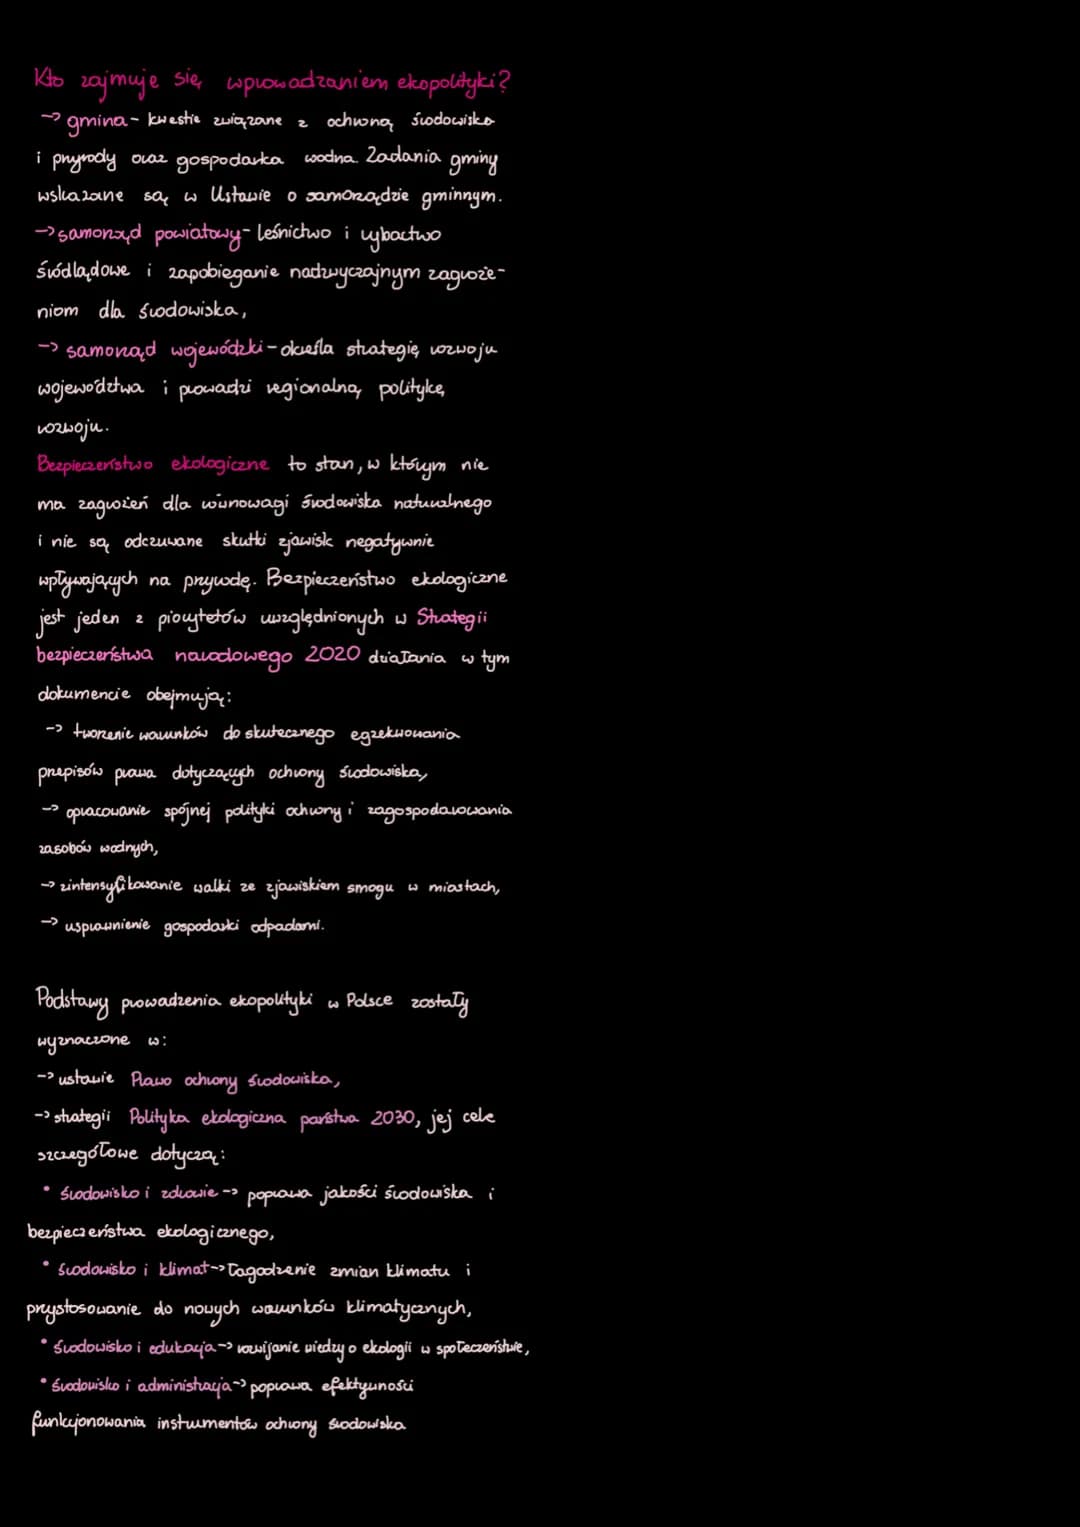 Kto zajmuje się wprowadzaniem ekopolityki?
-> gmina - kwestie związane z ochroną środowiska
i przyrody oraz gospodarka wodna. Zadania gminy
wskazane są w Ustawie o samorządzie gminnym.
-> samorząd powiatowy - leśnictwo i rybactwo
śródlądowe i zapobieganie nadzwyczajnym zagroże-
niom dla środowiska,
-> samorząd wojewódzki - określa strategię rozwoju
województwa i prowadzi regionalną politykę
rozwoju.
Bezpieczeństwo ekologiczne to stan, w którym nie
ma zagrożeń dla równowagi środowiska naturalnego
i nie są odczuwane skutki zjawisk negatywnie
wpływających na przyrodę. Bezpieczeństwo ekologiczne
jest jeden z priorytetów uwzględnionych w Strategii
bezpieczeństwa narodowego 2020 działania w tym
dokumencie obejmują:
-> tworzenie warunków do skutecznego egzekwowania
przepisów prawa dotyczących ochrony środowiska,
-> opracowanie spójnej polityki ochrony i zagospodarowania
zasobów wodnych,
-> zintensyfikowanie walki ze zjawiskiem smogu w miastach,
-> usprawnienie gospodarki odpadami.
Podstawy prowadzenia ekopolityki w Polsce zostały
wyznaczone w:
-> ustawie Prawo ochrony środowiska,
-> strategii Polityka ekologiczna państwa 2030, jej cele
szczegółowe dotyczą:
• środowisko i zdrowie -> poprawa jakości środowiska i
bezpieczeństwa ekologicznego,
• środowisko i klimat -> łagodzenie zmian klimatu i
przystosowanie do nowych warunków klimatycznych,
• środowisko i edukacja -> rozwijanie wiedzy o ekologii w społeczeństwie,
• środowisko i administracja -> poprawa efektywności
funkcjonowania instrumentów ochrony środowiska